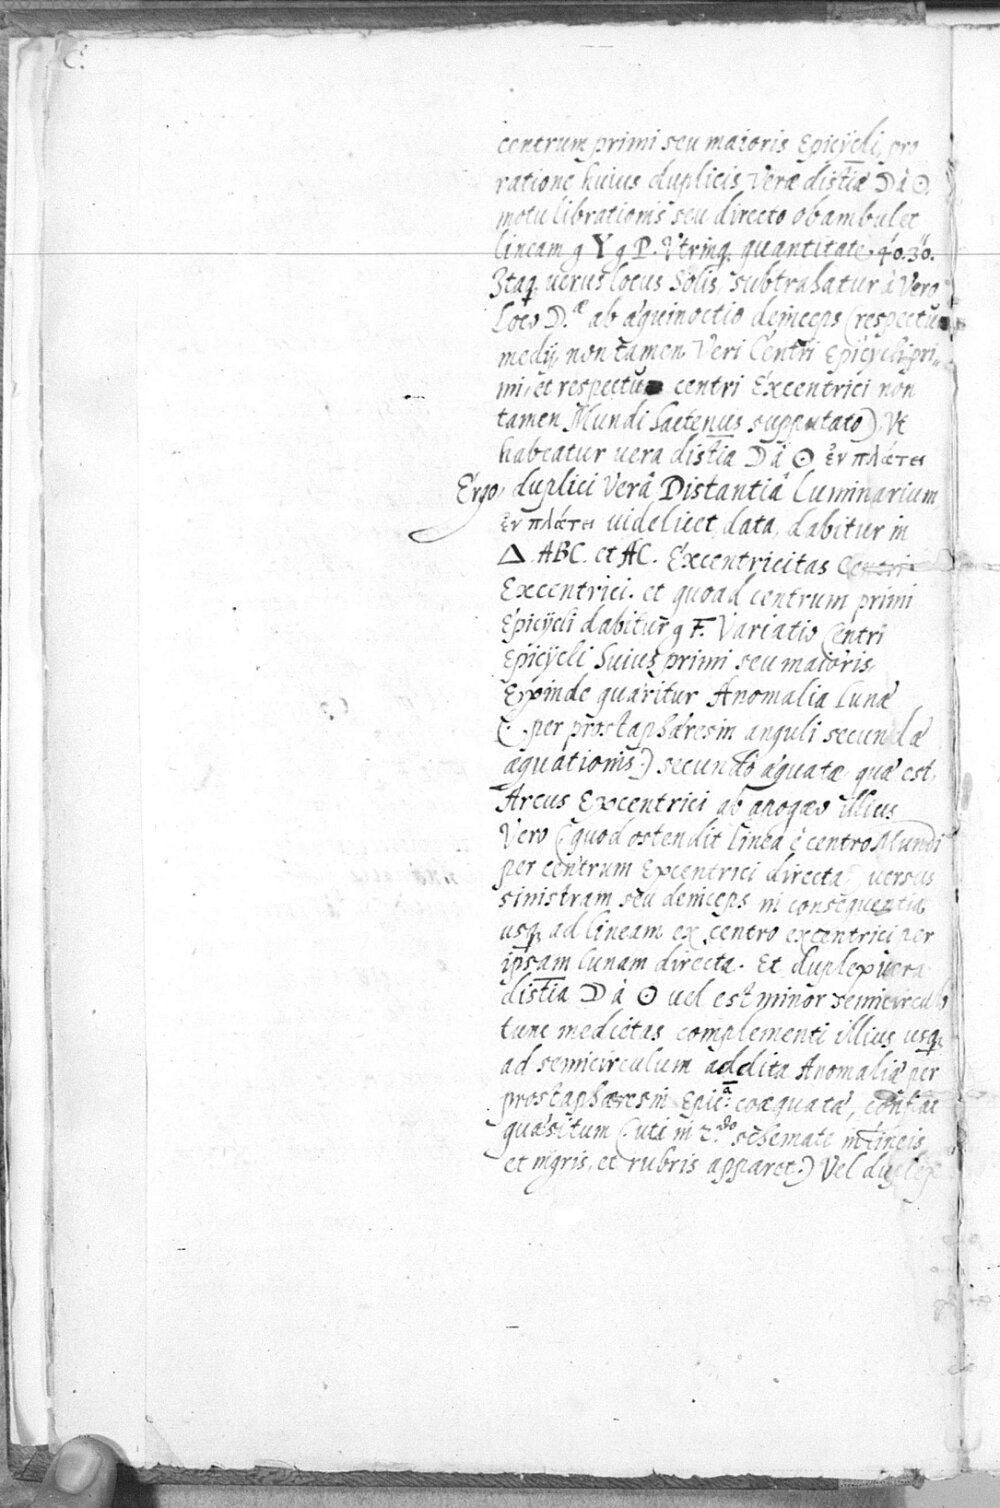 C.
centrum primi seu maioris Epicÿcli, pro
ratione huius duplicis Veræ distiæ ☽ à ☉,
motu librationis seu directo obambulet
lineam g Y g P. Vtrinq quantitate 40'.30".
Itaq verus locus Solis, subtrahatur à Vero
Loco ☽.æ ab æquinoctio deinceps (respectu
medij, non tamen Veri Centri Epicÿcli pri-
mi, et respectu centri Excentrici non
tamen Mundi hactenus supputato), Vt
habeatur vera distia ☽ à ☉ ἐν πλάτει
Ergo, duplici Verâ Distantiâ Luminarium
ἐν πλάτει videlicet data, dabitur in
△ ABC. et AC. Excentricitas Centri
Excentrici. et quoad centrum primi
Epicÿcli dabitur g F. Variatio Centri
Epicÿcli huius primi seu maioris,
Exinde quæritur Anomalia Lunæ
(. per prostaphæresin anguli secundæ
æquationis.) secundò æquatæ, quæ est,
Arcus Excentrici ab apogæo illius
Vero (quod ostendit linea è centro Mundi
per centrum Excentrici directa) versus
sinistram seu deinceps in consequentia
usq ad lineam ex centro excentrici per
ipsam Lunam directa. Et duplex vera
distia ☽ à ☉ vel est minor semicirculo
tunc medietas complementi illius usq
ad semicirculum addita Anomaliæ per
prostaphæresin Epic:ā coæquatæ, conflat
quæsitum (uti in 2.do schemate in lineis
et nigris, et rubris apparet.) Vel duplex